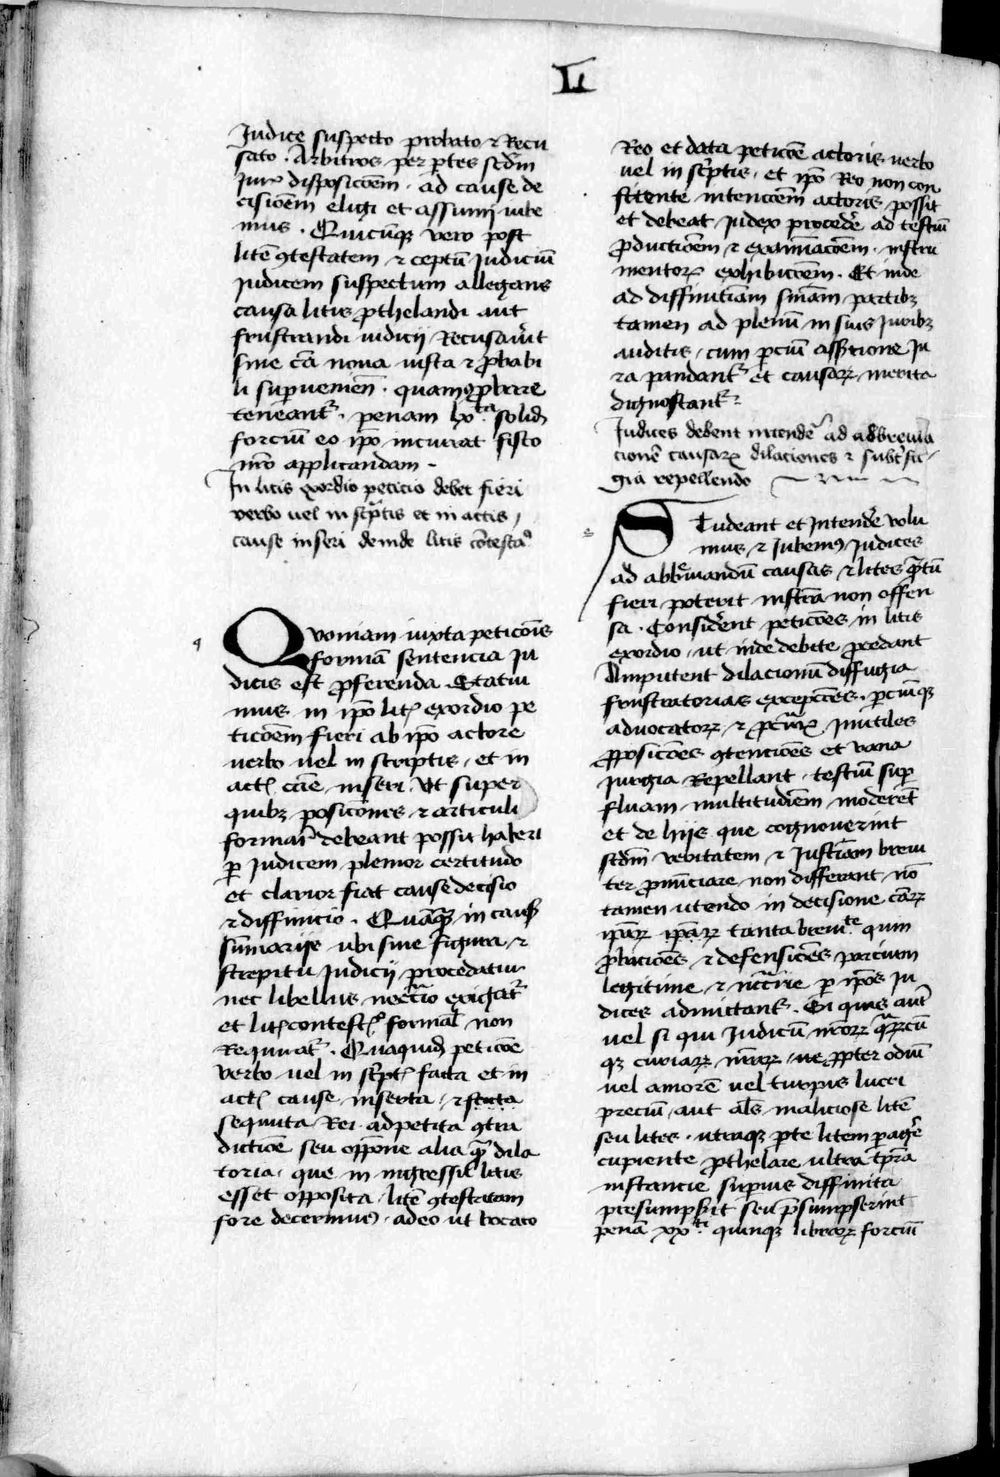 L
Judice suspecto probato ⁊ Recu
sato . Arbitros per p̲tes sed̅m
Jur᷒ disposicoēm . ad cause de
cisioēm eligi et assumij iube
mus . Quicūq̨ vero post
litē ꝯtestatam ⁊ ceptū Judiciū
Judicem suspectum allegans
causa litis ꝓthelandi aut
frustrandi iudicij Recusau̓it
sine cā noua iusta ⁊ ꝓbabi
li sup̲ueniēn . quam ꝓbare
teneant᷒ . penam lxta solid̄
forciū eo ip̄o incurrat fisco
nr̄o applicandam .
In litis exordio peticio debet fieri
verbo uel in sc̓ptis et in actis
cause inseri deinde litis cōtestaꝰ
Quoniam iuxta peticoīs
formā sentencia Ju
dicis est ꝓferenda . Statui
mus in ip̄o lit᷒ exordio pe
ticoēm fieri ab ip̄o actore
verbo uel in scriptis , et in
act᷒ cāe inseri . Vt super
quibꝫ posicōnes ⁊ articuli
formari debeant possit haberi
p̲ Judicem plenior certitudo
et clarior fiat cause decisio
⁊ diffinicio . Quāq̨ in caus̄
sūmarijs ubi sine figura ⁊
strepitu Judicij procedatur
nec libellus necc̄rio exigat᷒
et lit᷒ contest᷒ formal̄ non
Requirat᷒ . Quaquid̄ peticōe
verbo uel in sc̓pt᷒ facta et in
act᷒ cause inserta , ⁊ secuta
sequuta Rei ad petita ꝯtra
dictiōe seu opp̄one alia q̄ dila
toria , que in ingressu litis
esset opposita , litē ꝯtestatam
fore decernimus , adeo ut vocato
Reo et data peticōe actoris verbo
uel in sc̓ptis , et ip̄o Reo non con
fitente intencōem actoris possit
et debeat Judex procedere ad testiū
ꝓductioēm ⁊ examīacōem . instru
mentoꝝ exhibicoēm . Et inde
ad diffinitiām sn̄iam partibꝫ
tamen ad plenū in suis Juribꝫ
auditis , cum p̲ciū assertione Ju
ra pandant᷒ et causaꝝ merita
dignoscant᷒
Judices debent intende᷒ ad abbreuia
cionē causaꝝ dilaciones ⁊ subt̓fu
gia repellendo
Studeant et Intendere volu
mus ⁊ Iubemꝰ Judices
ad abbr̄euiandū causas ⁊ lites q̄tū
fieri poterit iustīa non offen
sa . Considerent peticōes in litis
exordio , ut inde debite procedant
Amputent dilacionū diffugia
frustratorias excepcōes . p̲ciūq̨
aduocatoꝝ ⁊ ꝓcūꝝ Inutiles
ꝓposicoēs ꝯtencioēs et vana
Jurgia Repellant . testiū sup̲
fluam multitudiēm moderēt
et de hijs que cognouerint
sed̄m veritatem ⁊ Justīam breui
ter ꝓnūciare non differant , nō
tamen utendo in decisione cāꝝ
ip̄aꝝ tanta breuitate quin
ꝓbacioēs ⁊ defensioēs parcium
legitime ⁊ necc̄rie p̲ ip̄os Ju
dices admittant᷒ . Si quis aut̄
uel si qui Judicū nr̄oꝝ
q̨ curiaꝝ nr̄aꝝ , ue ꝓpter odiū
uel amorē uel turpis lucri
preciū , aut al̄s maliciose litē
seu lites , utraq̨ p̲te litem p̲agere
cupiente ꝓthelare ultra tp̄ra
instancie superius diffinita
presumpserit seu p̄sumpserint
penā xxti quinq̨ libraꝝ forciū